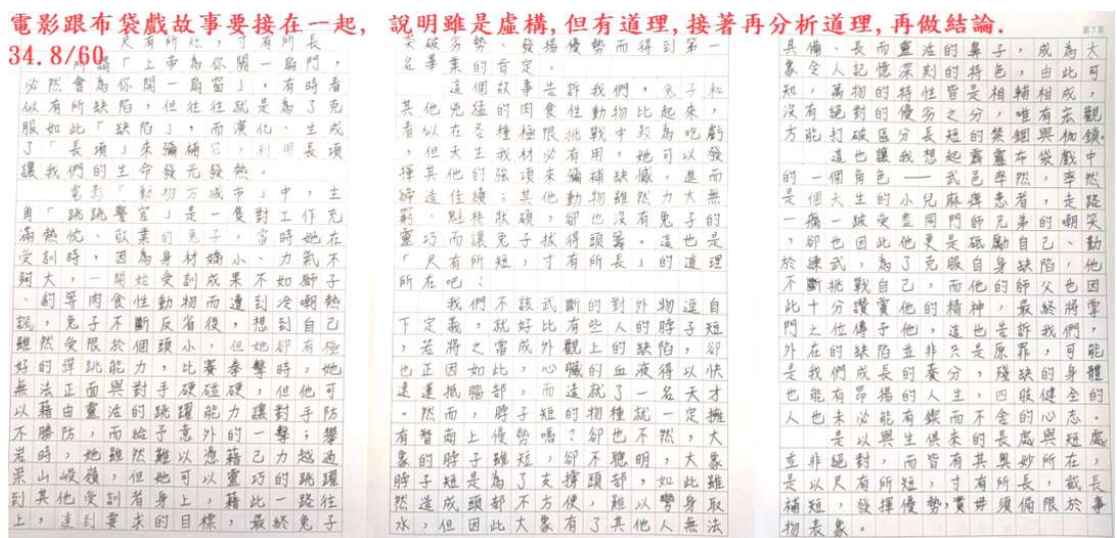 電影跟布袋戲故事要接在一起, 說明雖是虛構,但有道理,接著再分析道理,再做結論.
34.8/60
尺有所短,寸有所長
所謂「上帝為你關一扇門,
必然會為你開一扇窗」,有時看
似有所缺陷,但往往就是為了克
服如此「缺陷」,而演化、生成
了「長項」來彌補它,利用長項
讓我們的生命發光發熱。
電影「動物方城市」中,主
角「跳跳警官」是一隻對工作充
滿熱忱、敬業的兔子,當時她在
受訓時,因為身材嬌小、力氣不
夠大,一開始受訓成果不如獅子
、豹等肉食性動物而遭到冷嘲熱
諷,兔子不斷反省後,想到自己
雖然受限於個頭小,但她卻有極
好的彈跳能力,比賽拳擊時,她
無法正面與對手硬碰硬,但他可
以藉由靈活的跳躍能力讓對手防
不勝防,而給予意外的一擊;攀
岩時,她雖然難以憑藉己力越過
崇山峻嶺,但她可以靈巧的跳躍
到其他受訓者身上,藉此一路往
上,達到要求的目標,最終兔子
突破劣勢、發揚優勢而得到第一
名畢業的肯定。
這個故事告訴我們,兔子和
其他兇猛的肉食性動物比起來,
看似在各種極限挑戰中較為吃虧
,但天生我材必有用,她可以發
揮其他的強項來彌補缺憾,進而
締造佳績;其他動物雖然力大無
窮、點格狀碩,卻也沒有兔子的
靈巧而讓兔子拔得頭籌。這也是
「尺有所短,寸有所長」的道理
所在吧!
我們不該武斷的對外物逕自
下定義,就好比有些人的脖子短
,若將之當成外觀上的缺陷,卻
也正因如此,心臟的血液得以快
速運抵腦部,而造就了一名天才
。然而,脖子短的物種就一定擁
有智商上優勢嗎?卻也不然,大
象的脖子雖短,卻不聰明,大象
脖子短是為了支撐頭部,如此雖
然造成頭部不方便,難以彎身取
水,但因此大象有了其他人無法
具備、長而靈活的鼻子,成為大
象令人記憶深刻的特色,由此可
知,萬物的特性皆是相輔相成,
沒有絕對的優劣之分,唯有宏觀
方能打破區分長短的禁錮與枷鎖。
這也讓我想起霹靂布袋戲中
的一個角色——武邑率然,率然
是個天生的小兒麻痺患者,走路
一瘸一跛受盡同門師兄弟的嘲笑
,卻也因此他更是砥勵自己、勤
於練武,為了克服自身缺陷,他
不斷挑戰自己,而他的師父也因
此十分讚賞他的精神,最終將掌
門之位傳予他,這也告訴我們,
外在的缺陷並非只是原罪,可能
是我們成長的養分,殘缺的身體
也能有昂揚的人生,四肢健全的
人也未必能有鍥而不舍的心志。
是以與生俱來的長處與短處
並非絕對,而皆有其奧妙所在,
是以尺有所短,寸有所長,截長
補短,發揮優勢,實毋須侷限於事
物表象。